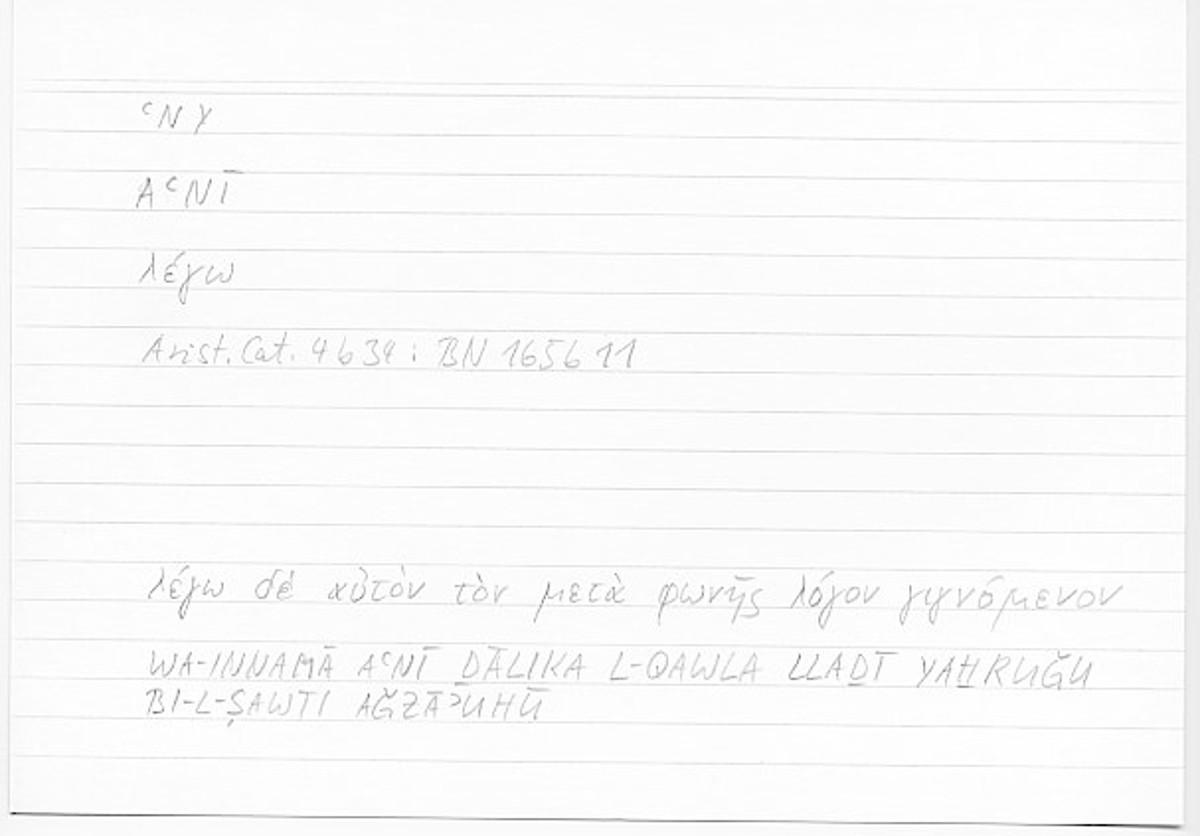 ʿNY
AʿNĪ
λέγω
Arist. Cat. 4 b 34 ; BN 165 b 11
λέγω δὲ αὐτὸν τὸν μετὰ φωνῆς λόγον γιγνόμενον
WA-INNAMĀ AʿNĪ ḎĀLIKA L-QAWLA LLAḎĪ YAḪRUǦU
BI-L-ṢAWTI AǦZĀʾUHŪ